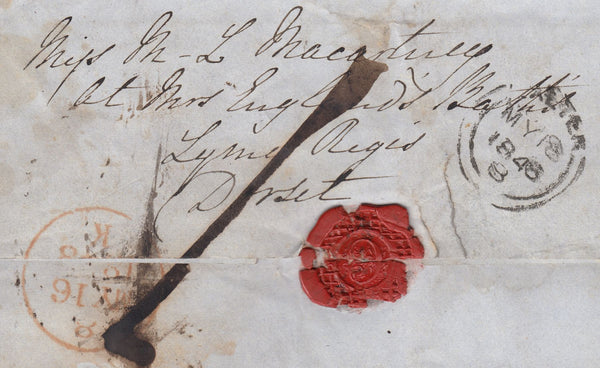 Miss M-L Macartney
at Mrs England's Baths
Lyme Regis
Dorset
EXETER
MY 18
1848